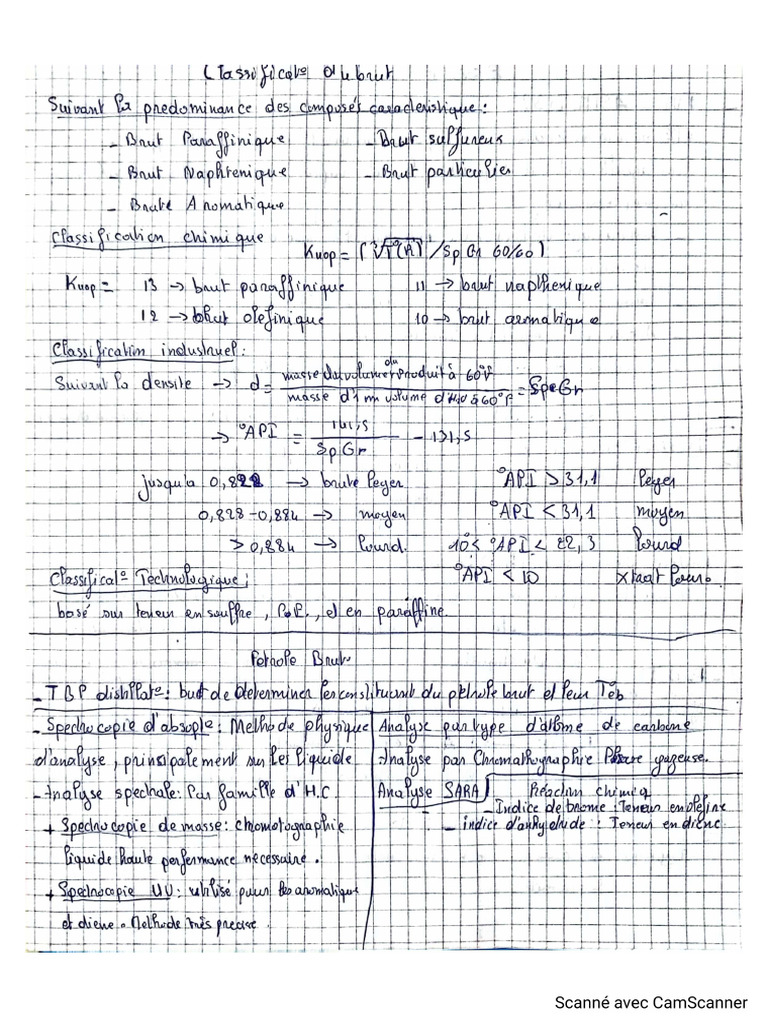 Classificat° du brut
Suivant la predominance des composés caracteristique :
- Brut Paraffinique - Brut sulfureux
- Brut Naphtenique - Brut particulier
- Brute Aromatique
Classification chimique
Kuop = (∛T(R) / Sp Gr 60/60)
Kuop = 13 → brut paraffinique 11 → brut naphtenique
12 → brut olefinique 10 → brut aromatique
Classification industruel :
Suivant la densite → d = masse d'un volume du produit à 60°F / masse d'1 m volume d'H2O à 60°F = SpeGr
→ °API = 141,5 / SpGr - 131,5
jusqu'a 0,828 → brute leger °API > 31,1 leger
0,828-0,884 → moyen °API < 31,1 moyen
> 0,884 → lourd. 10 < °API < 22,3 lourd
Classificat° Technologique : °API < 10 xtrat lour.
basé sur teneur en souffre, P.E., et en paraffine.
Petrole Brut
- TBP distillat° : but de determiner les constituant du petrole brut et leur Téb
- Spectrocopie d'absopt° : Methode physique
d'analyse, principalement sur les liquide
- Analyse spectrale : Par famille d'H.C
+ Spectrocopie de masse : chromotographie
liquide haute performance necessaire.
+ Spectrocopie UV : utilisé pour les aromatique
et diene. Methode très precise.
Analyse par type d'atome de carbone
Analyse par Chromathographie Phase gazeuse.
Analyse SARA Réaction chimiq
- Indice de brome : Teneur en olefine
- indice d'anhydride : Teneur en diene
Scanné avec CamScanner